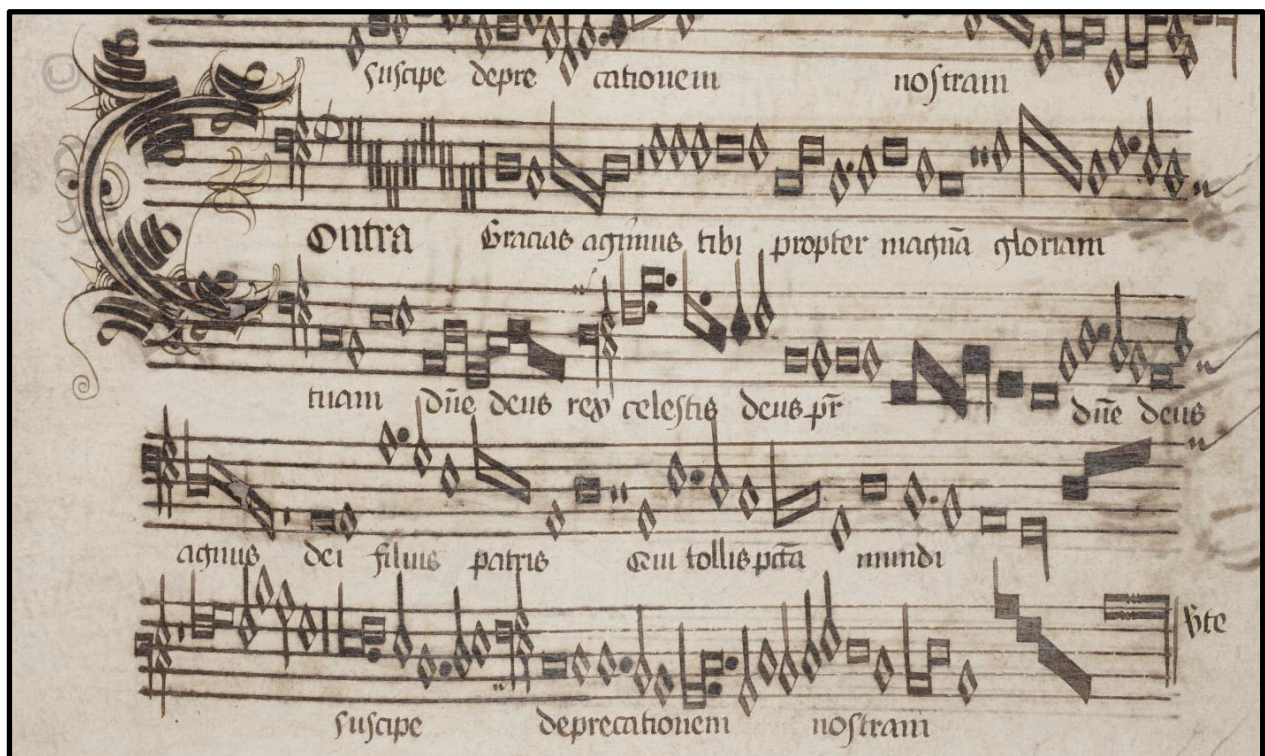 suscipe depre cationem nostram
Contra Gracias agimus tibi propter magnā gloriam
tuam dn̄e deus rex celestis deus pr̄ dn̄e deus
agnus dei filius patris Qui tollis pctā mundi
v̄te
suscipe deprecationem nostram